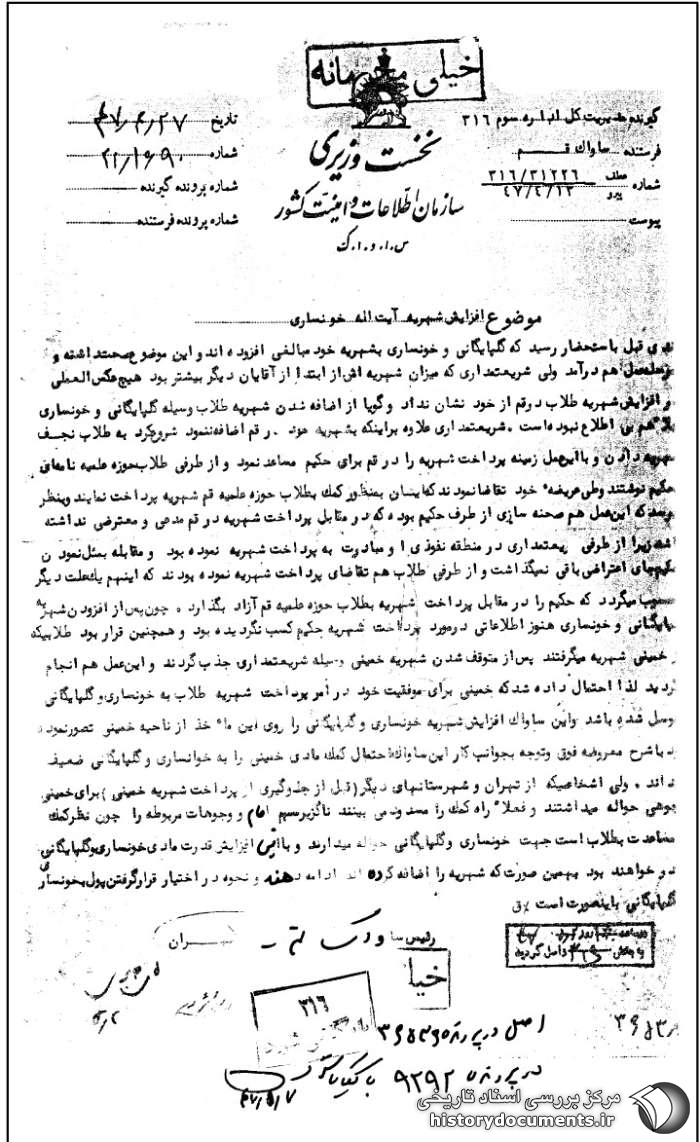 خیلی محرمانه
نخست وزیری
سازمان اطلاعات و امنیت کشور
س.ا.و.ا.ک
گیرنده مدیریت کل اداره سوم ۳۱۶
فرستنده ساواک قم
شماره عطف ۳۱۶/۳۱۲۲۶
پیرو ۴۷/۴/۱۲
پیوست
تاریخ ۴۷/۴/۲۷
شماره ۲۱/۱۶۹۰
شماره پرونده گیرنده
شماره پرونده فرستنده
موضوع افزایش شهریه آیت اله خونساری
قبل باستحضار رسید که گلپایگانی و خونساری بشهریه خود مبالغی افزوده اند و این موضوع صحت داشته و
هم درآمد ولی شریعتمداری که میزان شهریه اش از ابتدا از آقایان دیگر بیشتر بود هیچ عکس العملی
افزایش شهریه طلاب در قم از خود نشان نداد و گویا از اضافه شدن شهریه طلاب وسیله گلپایگانی و خونساری
هم بی اطلاع نبوده است . شریعتمداری علاوه براینکه بشهریه خود در قم اضافه ننمود شروع کرد به طلاب نجف
شهریه دادن و با این عمل زمینه پرداخت شهریه را در قم برای حکیم مساعد نمود و از طرفی طلاب حوزه علمیه نامه ای
حکیم نوشتند وطی عریضه خود تقاضا نمودند که ایشان بمنظور کمک بطلاب حوزه علمیه قم شهریه پرداخت نمایند و بنظر
که این عمل هم صحنه سازی از طرف حکیم بوده که در مقابل پرداخت شهریه در قم مدعی و معترضی نداشته
زیرا از طرفی شریعتمداری در منطقه نفوذی او مبادرت به پرداخت شهریه نموده بود و مقابله بمثل نمودن
جای اعتراضی باقی نمیگذاشت و از طرفی طلاب هم تقاضای پرداخت شهریه نموده بودند که اینهم یک علت دیگر
محسوب میگردد که حکیم را در مقابل پرداخت شهریه بطلاب حوزه علمیه قم آزاد بگذارد . چون پس از افزودن شهریه
گلپایگانی و خونساری هنوز اطلاعاتی در مورد پرداخت شهریه حکیم کسب نگردیده بود و همچنین قرار بود طلابیکه
خمینی شهریه میگرفتند پس از متوقف شدن شهریه خمینی وسیله شریعتمداری جذب گردند و این عمل هم انجام
گردید لذا احتمال داده شد که خمینی برای موفقیت خود در امر پرداخت شهریه طلاب به خونساری و گلپایگانی
متوسل شده باشد واین ساواک افزایش شهریه خونساری و گلپایگانی را روی این ماخذ از ناحیه خمینی تصور نموده
با شرح معروضه فوق وتوجه بجوانب کار این ساواک احتمال کمک مادی خمینی را به خوانساری و گلپایگانی ضعیف
ولی اشخاصیکه از تهران و شهرستانهای دیگر (قبل از جلوگیری از پرداخت شهریه خمینی) برای خمینی
وجوهی حواله میداشتند و فعلا راه کمک را مسدود می بینند ناگزیر سهم امام و وجوهات مربوطه را چون نظر کمک
مساعدت بطلاب است جهت خونساری و گلپایگانی حواله میدارند و با این افزایش قدرت مادی خونساری و گلپایگانی
و خواهند بود بهمین صورت که شهریه را اضافه کرده اند ادامه دهند و نحوه در اختیار قرار گرفتن پول بخونساری
گلپایگانی باینصورت است
رئیس ساواک
خیلی
۳۱۶
اصل در پرونده
در پرونده ۹۲۹۲ بایگانی
مرکز بررسی اسناد تاریخی
historydocuments.ir